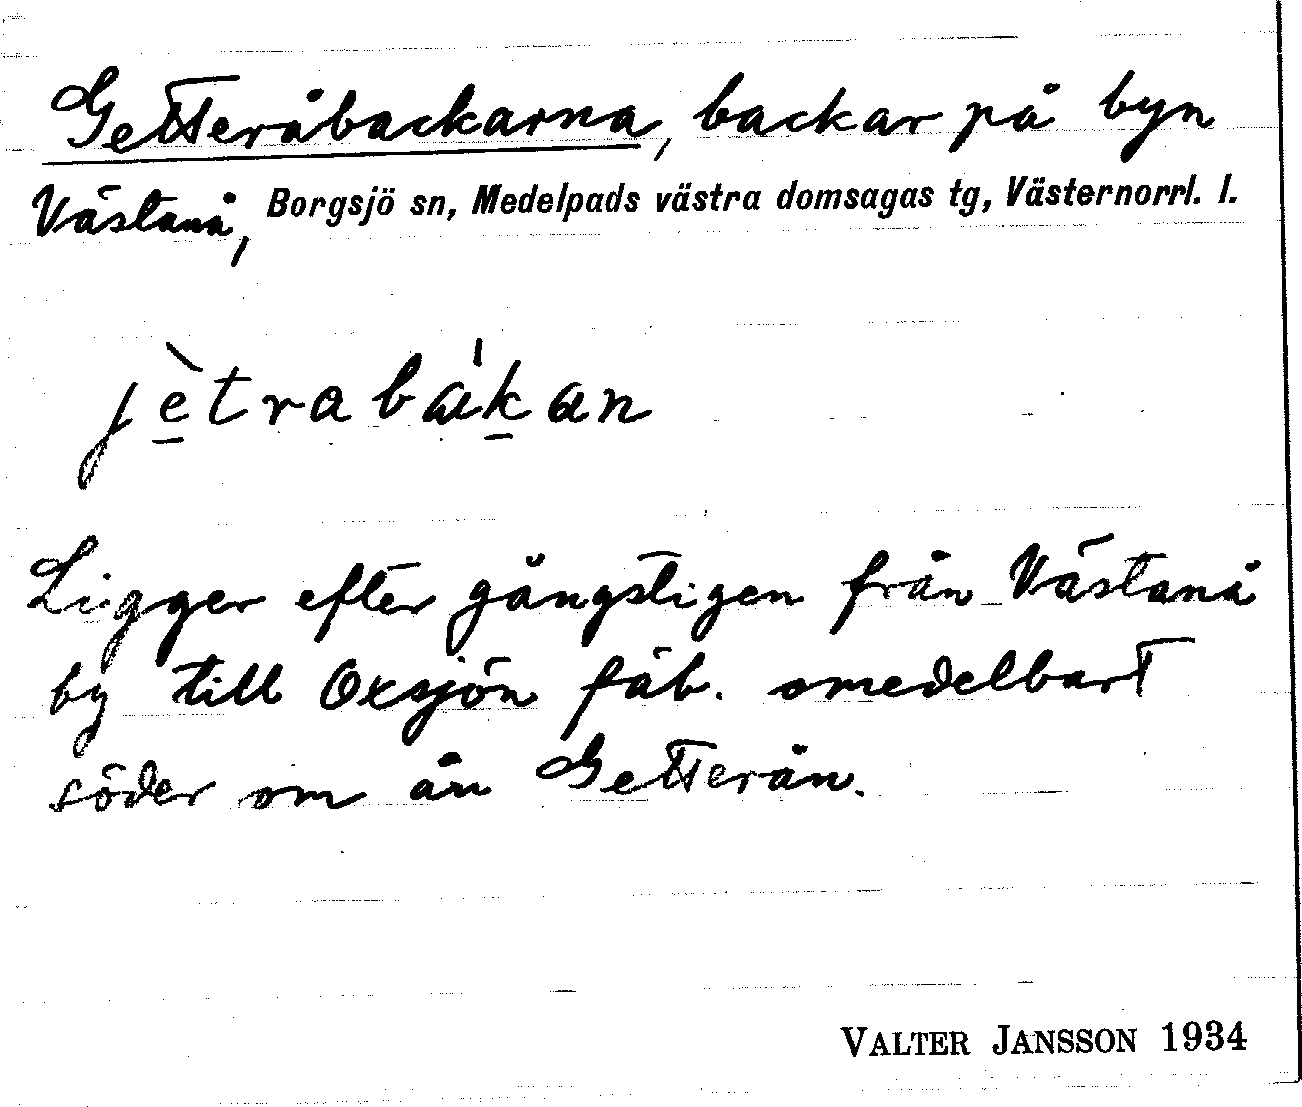 Getteråbackarna, backar på byn
Västanå, Borgsjö sn, Medelpads västra domsagas tg, Västernorrl. l.
jètrabákan
Ligger efter gångstigen från Västanå
by till Oxsjön fäb. omedelbart
söder om ån Getterån.
VALTER JANSSON 1934